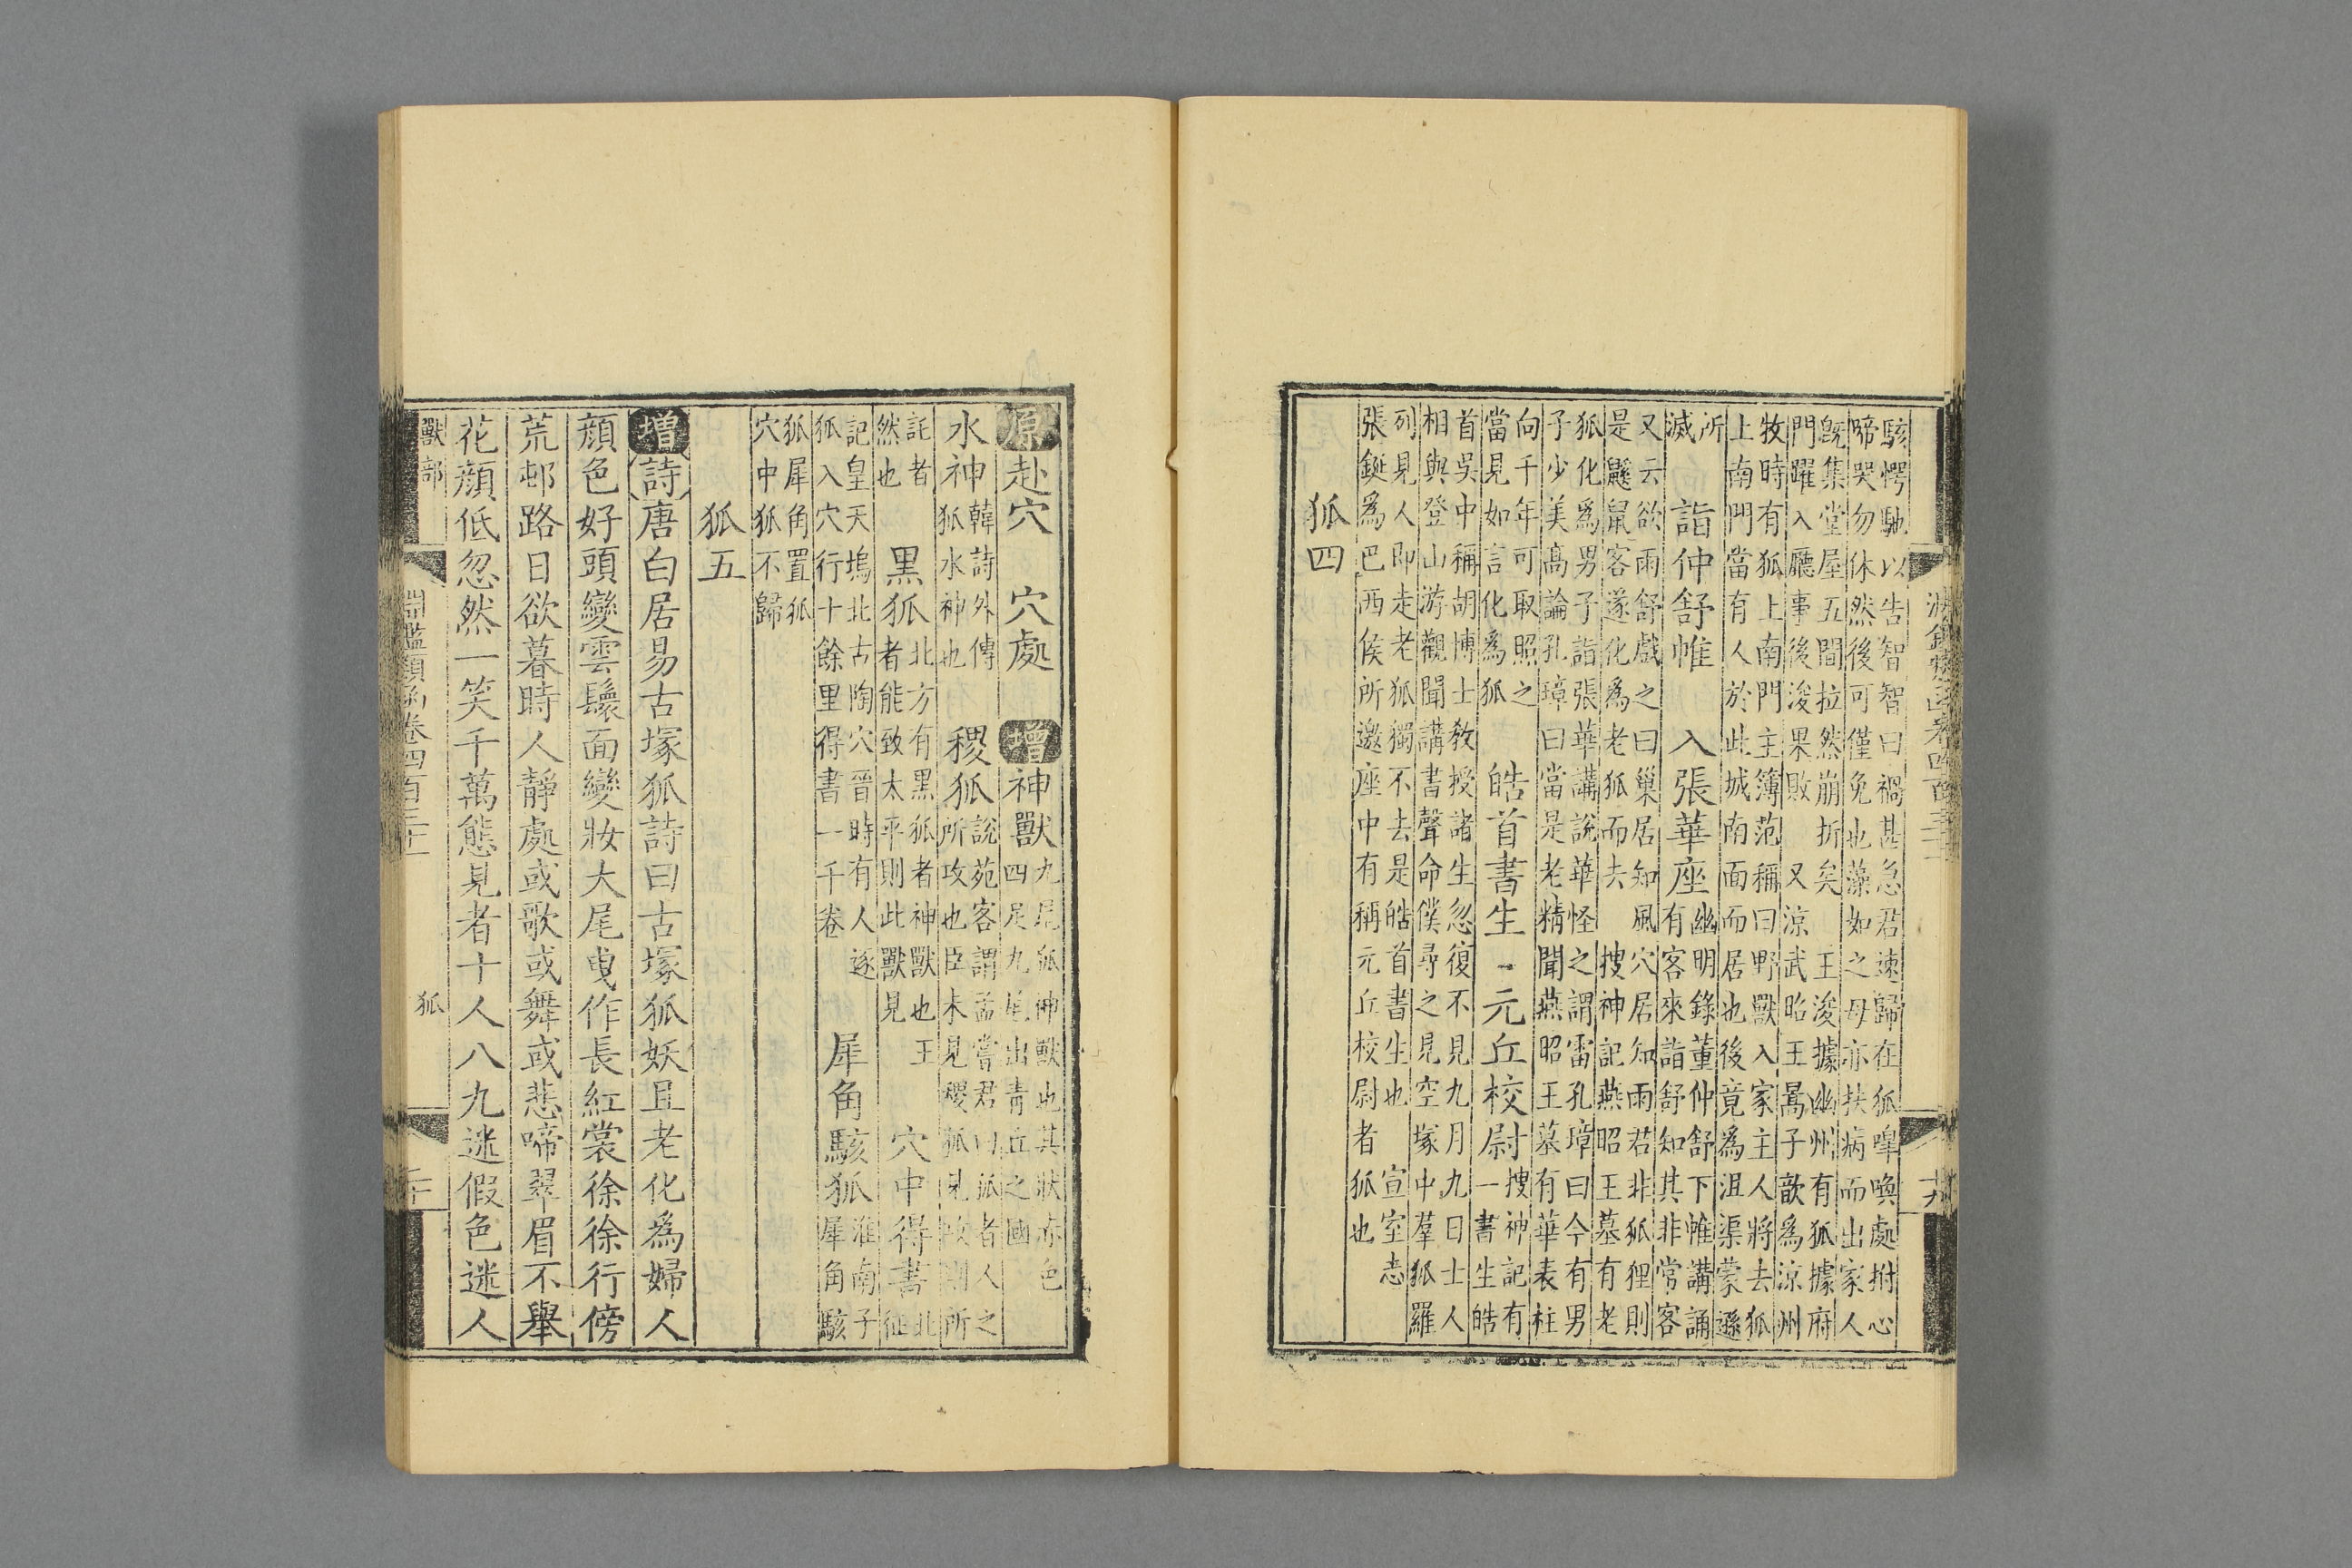 駭愕馳以告智智曰禍甚急君速歸在狐嘷喚處拊心
啼哭勿休然後可僅免也藻如之母亦扶病而出家人
旣集堂屋五間拉然崩折矣 王浚據幽州有狐據府
門躍入廳事後浚果敗 又涼武昭王暠子歆爲涼州
牧時有狐上南門主簿范稱曰野獸入家主人將去狐
上南門當有人於此城南面而居也後竟爲沮渠蒙遜
所
滅
詣仲舒帷
幽明錄董仲舒下帷講誦
有客來詣舒知其非常客
又云欲雨舒戲之曰巢居知風穴居知雨君非狐狸則
是鼷鼠客遂化爲老狐而去
入張華座
搜神記燕昭王墓有老
狐化爲男子詣張華講說華怪之謂雷孔璋曰今有男
子少美高論孔璋曰當是老精聞燕昭王墓有華表柱
向千年可取照之
當見如言化爲狐
皓首書生 元丘校尉
搜神記有
一書生皓
首吳中稱胡博士教授諸生忽復不見九月九日士人
相與登山游觀聞講書聲命僕尋之見空塚中羣狐羅
列見人即走老狐獨不去是皓首書生也 宣室志
張鋋爲巴西侯所邀座中有稱元丘校尉者狐也
狐四
十九
原赴穴 穴處 增神獸
九尾狐神獸也其狀赤色
四足九尾出青丘之國
水神
韓詩外傳
狐水神也
稷狐
說苑客謂孟嘗君曰狐者人之
所攻也臣未見稷狐見攻
託者
然也
黑狐
北方有黑狐者神獸也王
者能致太平則此獸見
穴中得書
北
征
記皇天塢北古陶穴晉時有人逐
狐入穴行十餘里得書一千卷
犀角駭狐
淮南子
犀角駭
狐犀角置狐
穴中狐不歸
狐五
增詩唐白居易古塚狐詩曰古塚狐妖且老化爲婦人
顏色好頭變雲鬟面變妝大尾曳作長紅裳徐徐行傍
荒邨路日欲暮時人靜處或歌或舞或悲啼翠眉不舉
花顏低忽然一笑千萬態見者十人八九迷假色迷人
獸部
淵鑑類函卷四百三十一 狐
二十